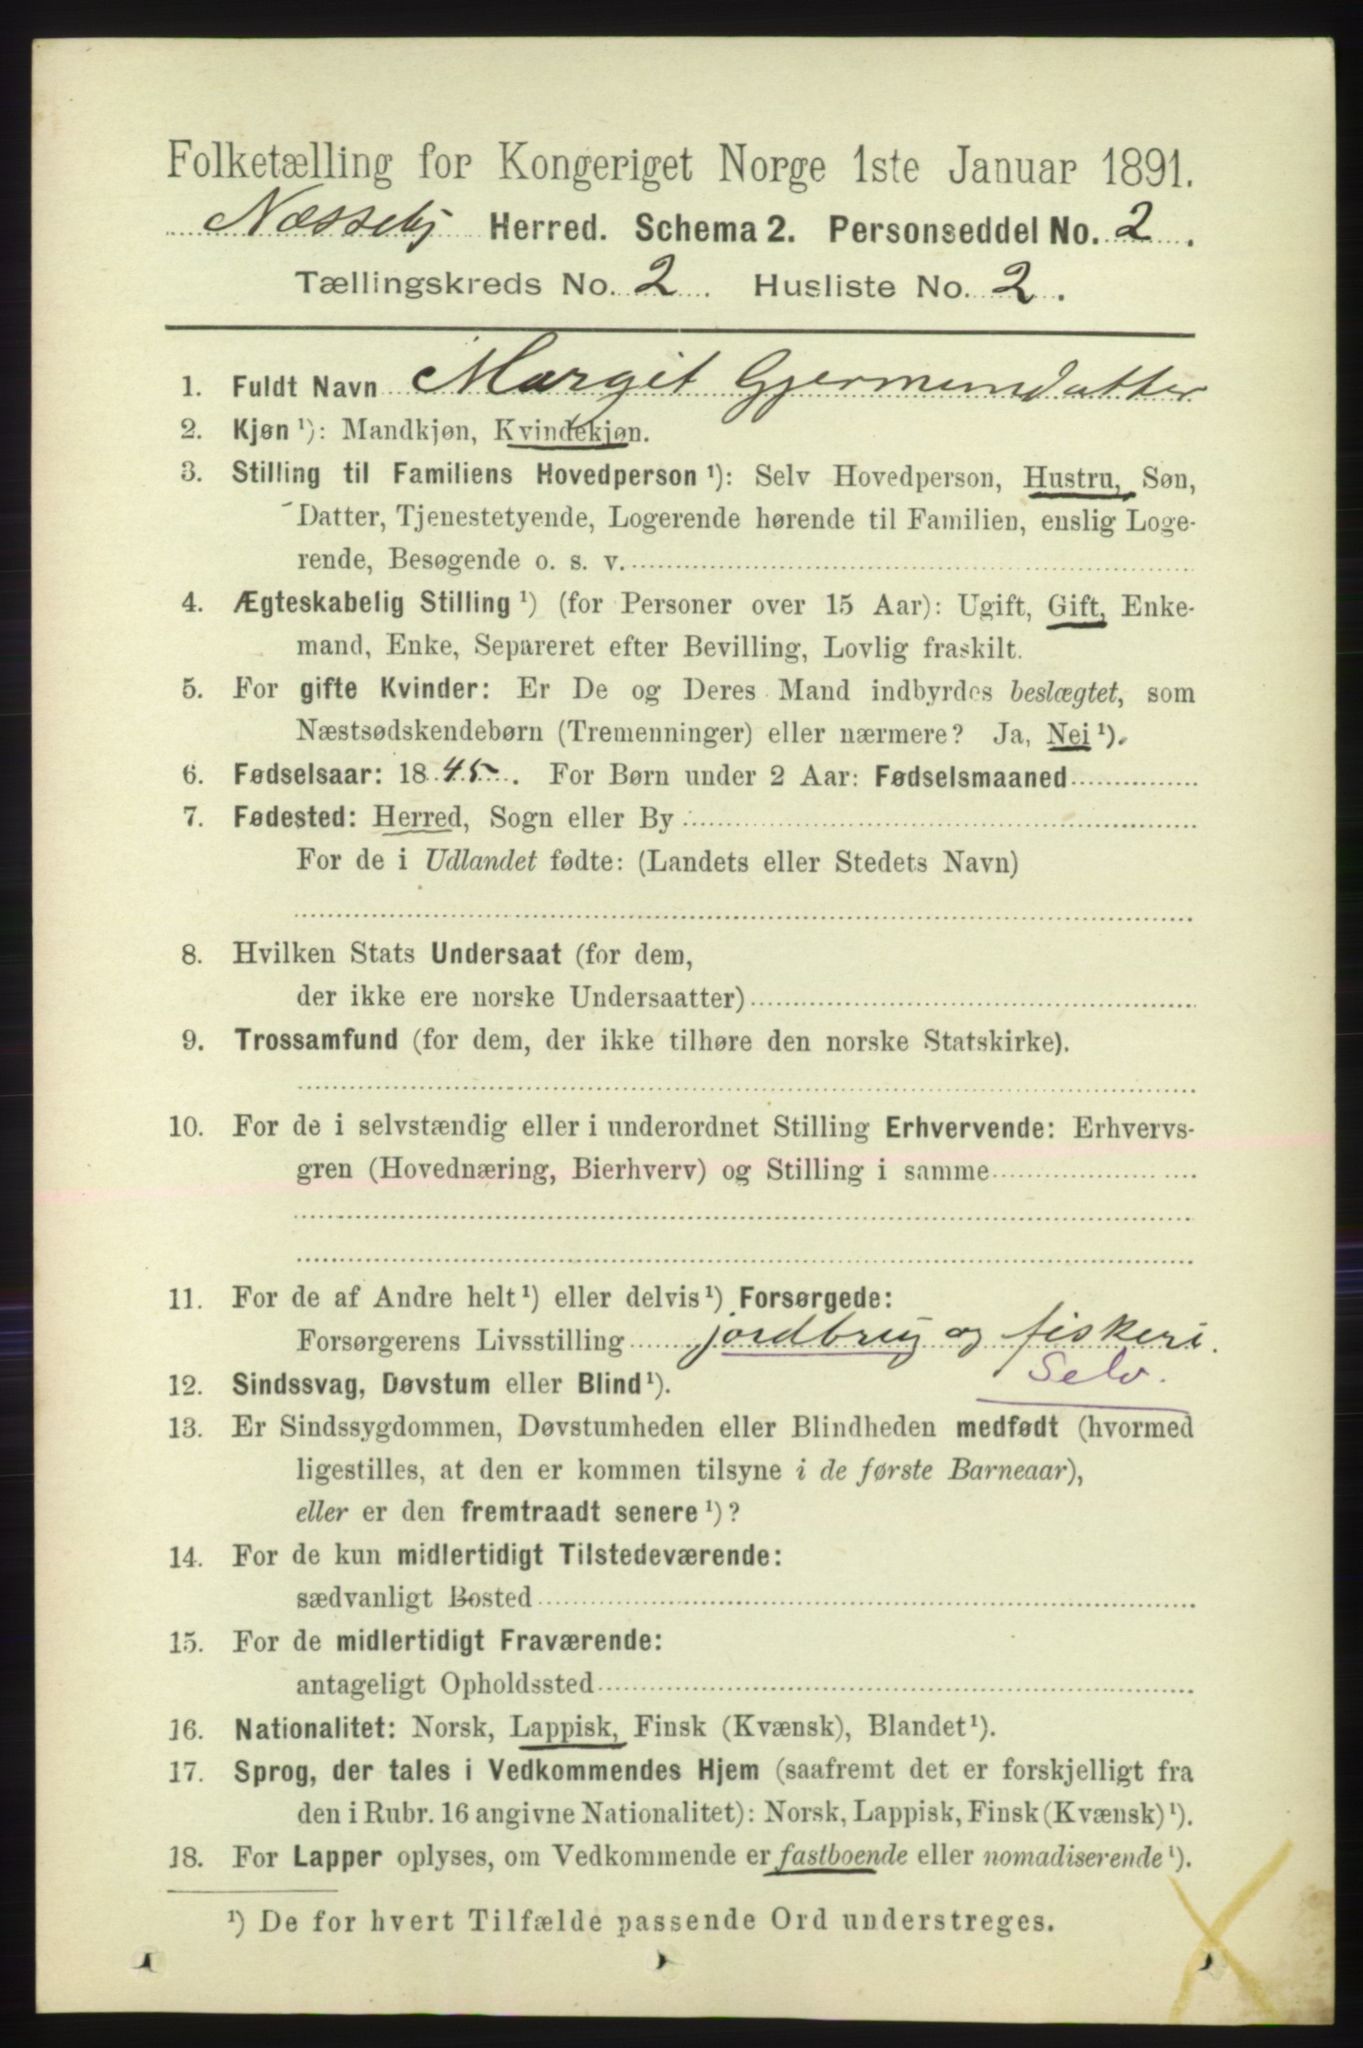 Folketælling for Kongeriget Norge 1ste Januar 1891.
Næsseby Herred. Schema 2. Personseddel No. 2.
Tællingskreds No. 2. Husliste No. 2.
1. Fuldt Navn Margit Gjermundatter
2. Kjøn ¹): Mandkjøn, Kvindekjøn.
3. Stilling til Familiens Hovedperson ¹): Selv Hovedperson, Hustru, Søn,
Datter, Tjenestetyende, Logerende hørende til Familien, enslig Loge-
rende, Besøgende o. s. v.
4. Ægteskabelig Stilling ¹) (for Personer over 15 Aar): Ugift, Gift, Enke-
mand, Enke, Separeret efter Bevilling, Lovlig fraskilt.
5. For gifte Kvinder: Er De og Deres Mand indbyrdes beslægtet, som
Næstsødskendebørn (Tremenninger) eller nærmere? Ja, Nei ¹).
6. Fødselsaar: 1845. For Børn under 2 Aar: Fødselsmaaned
7. Fødested: Herred, Sogn eller By
For de i Udlandet fødte: (Landets eller Stedets Navn)
8. Hvilken Stats Undersaat (for dem,
der ikke ere norske Undersaatter)
9. Trossamfund (for dem, der ikke tilhøre den norske Statskirke).
10. For de i selvstændig eller i underordnet Stilling Erhvervende: Erhvervs-
gren (Hovednæring, Bierhverv) og Stilling i samme
11. For de af Andre helt ¹) eller delvis ¹) Forsørgede:
Forsørgerens Livsstilling jordbrug og fiskeri.
Selv.
12. Sindssvag, Døvstum eller Blind ¹).
13. Er Sindssygdommen, Døvstumheden eller Blindheden medfødt (hvormed
ligestilles, at den er kommen tilsyne i de første Barneaar),
eller er den fremtraadt senere ¹)?
14. For de kun midlertidigt Tilstedeværende:
sædvanligt Bosted
15. For de midlertidigt Fraværende:
antageligt Opholdssted
16. Nationalitet: Norsk, Lappisk, Finsk (Kvænsk), Blandet ¹).
17. Sprog, der tales i Vedkommendes Hjem (saafremt det er forskjelligt fra
den i Rubr. 16 angivne Nationalitet): Norsk, Lappisk, Finsk (Kvænsk) ¹).
18. For Lapper oplyses, om Vedkommende er fastboende eller nomadiserende ¹).
¹) De for hvert Tilfælde passende Ord understreges.